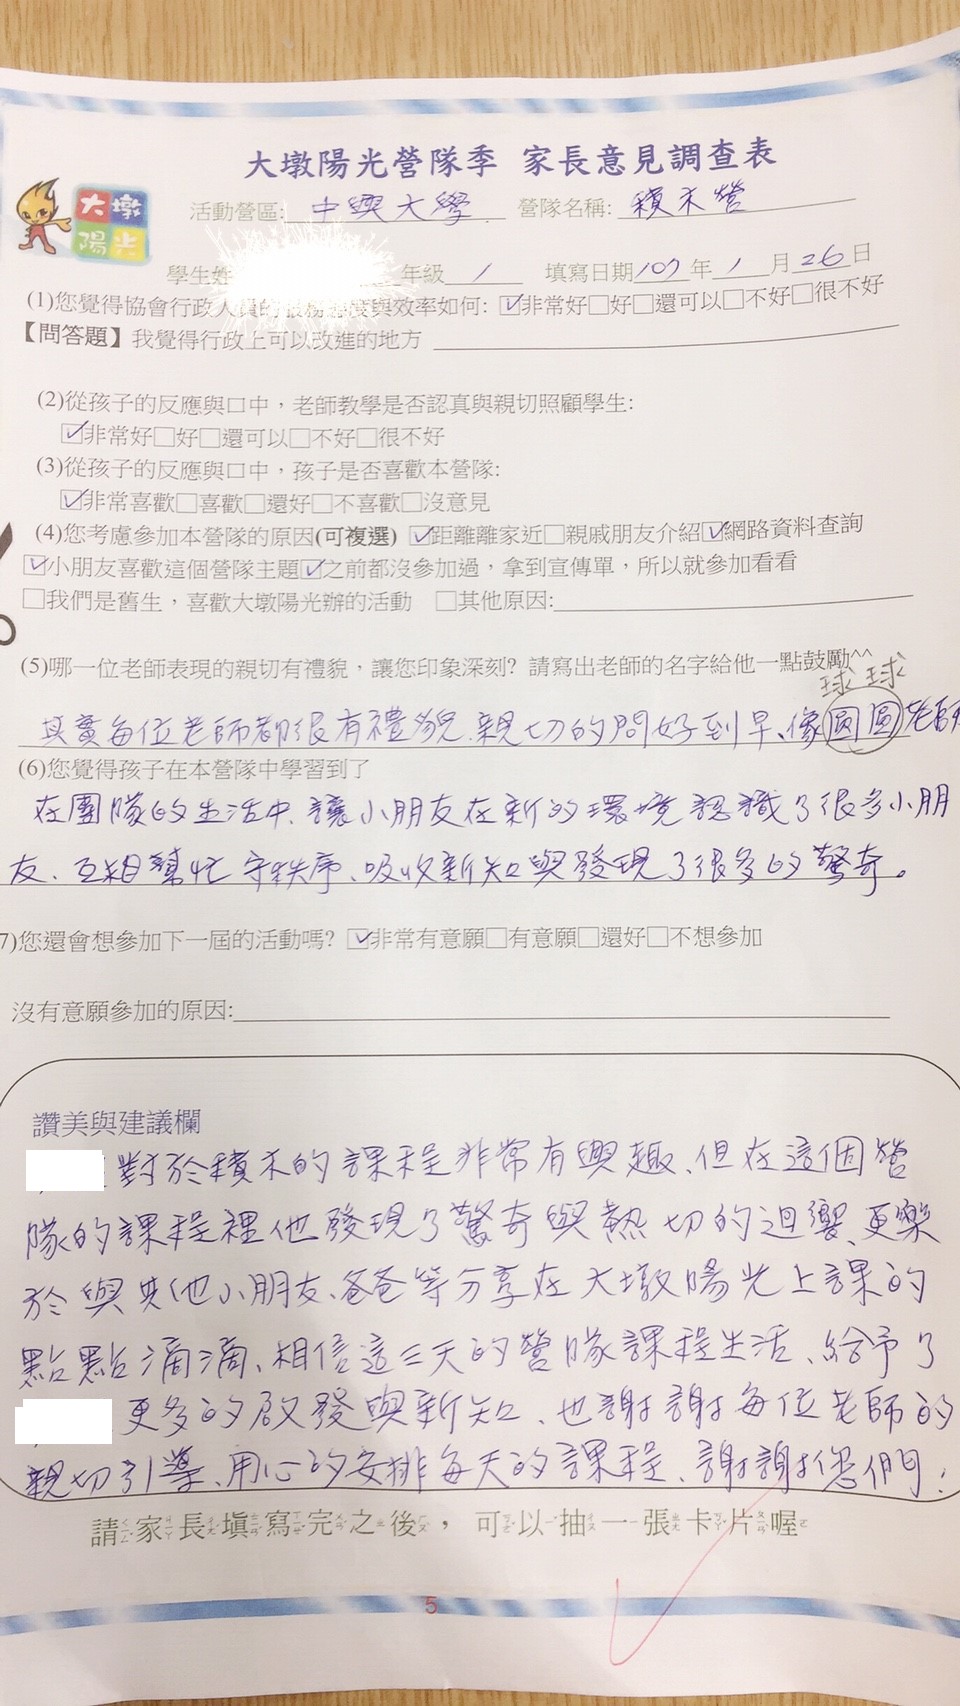 大墩陽光營隊季 家長意見調查表
大墩
陽光
活動營區: 中興大學 營隊名稱: 積木營
學生姓 年級 1 填寫日期 107 年 1 月 26 日
(1)您覺得協會行政人員的服務態度與效率如何: ☑非常好□好□還可以□不好□很不好
【問答題】我覺得行政上可以改進的地方
(2)從孩子的反應與口中，老師教學是否認真與親切照顧學生:
☑非常好□好□還可以□不好□很不好
(3)從孩子的反應與口中，孩子是否喜歡本營隊:
☑非常喜歡□喜歡□還好□不喜歡□沒意見
(4)您考慮參加本營隊的原因(可複選) ☑距離離家近□親戚朋友介紹☑網路資料查詢
☑小朋友喜歡這個營隊主題☑之前都沒參加過，拿到宣傳單，所以就參加看看
□我們是舊生，喜歡大墩陽光辦的活動 □其他原因:
(5)哪一位老師表現的親切有禮貌，讓您印象深刻? 請寫出老師的名字給他一點鼓勵^^
球球
其實每位老師都很有禮貌、親切的問好到早、像圓圓老師
(6)您覺得孩子在本營隊中學習到了
在團隊的生活中、讓小朋友在新的環境認識了很多小朋
友、互相幫忙守秩序、吸收新知與發現了很多的驚奇。
7)您還會想參加下一屆的活動嗎? ☑非常有意願□有意願□還好□不想參加
沒有意願參加的原因:
讚美與建議欄
對於積木的課程非常有興趣、但在這個營
隊的課程裡他發現了驚奇與熱切的迴響、更樂
於與其他小朋友、爸爸等分享在大墩陽光上課的
點點滴滴、相信這三天的營隊課程生活、給予了
更多的啟發與新知、也謝謝每位老師的
親切引導、用心的安排每天的課程、謝謝您們！
請家長填寫完之後，可以抽一張卡片喔
5